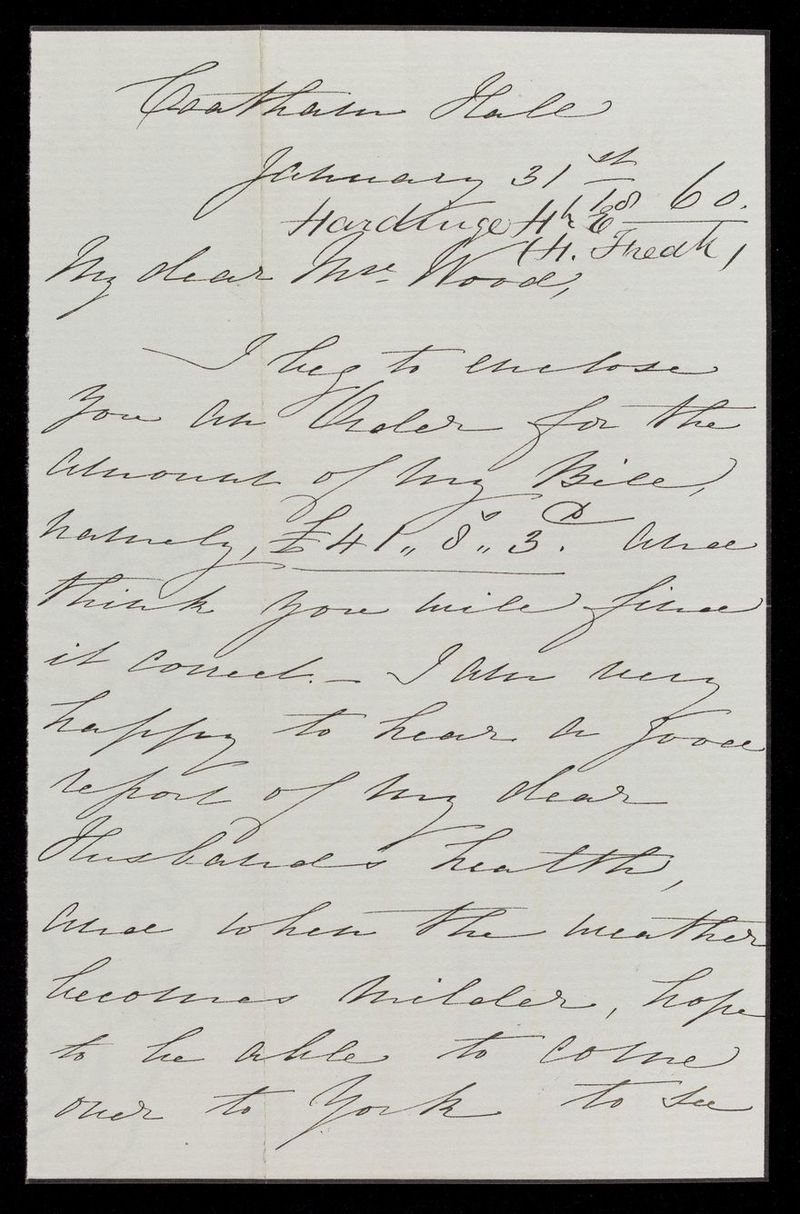 Coatham Hall
January 31st 1860.
Hardinge H
(H.
My dear Mrs. Wood,
I beg to enclose
you an Order for the
amount of my Bill,
namely, £41,, 8s,, 3.D and
think you will find
it correct. — I am very
happy to hear a good
report of my dear
Husbands health,
and when the weather
becomes milder, hope
to be able to come
over to York to see